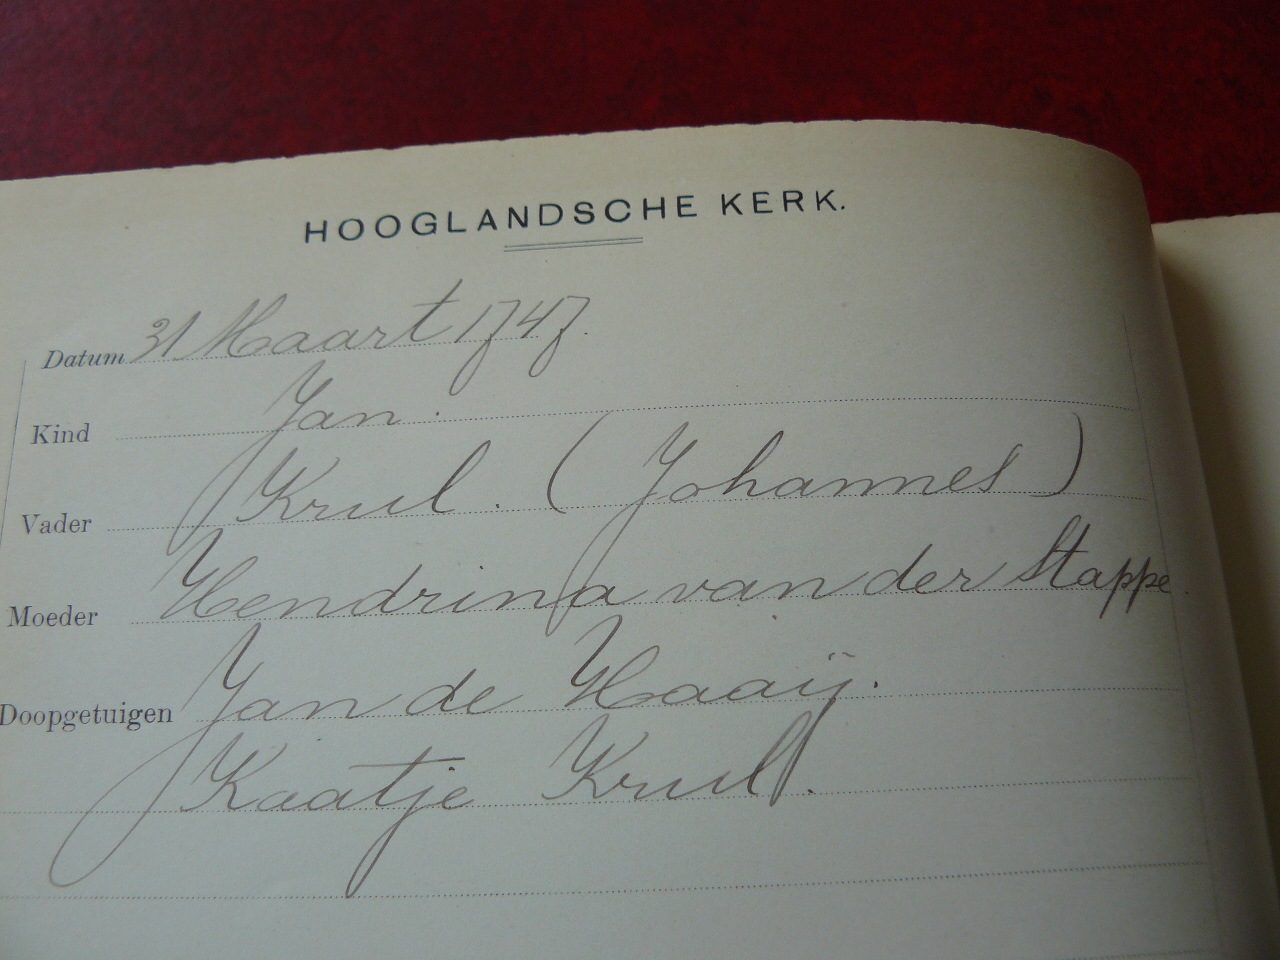 HOOGLANDSCHE KERK.
Datum 31 Maart 1747.
Kind Jan.
Vader Krul. (Johannes)
Moeder Hendrina van der Stappe
Doopgetuigen Jan de Haaij.
Kaatje Krul.